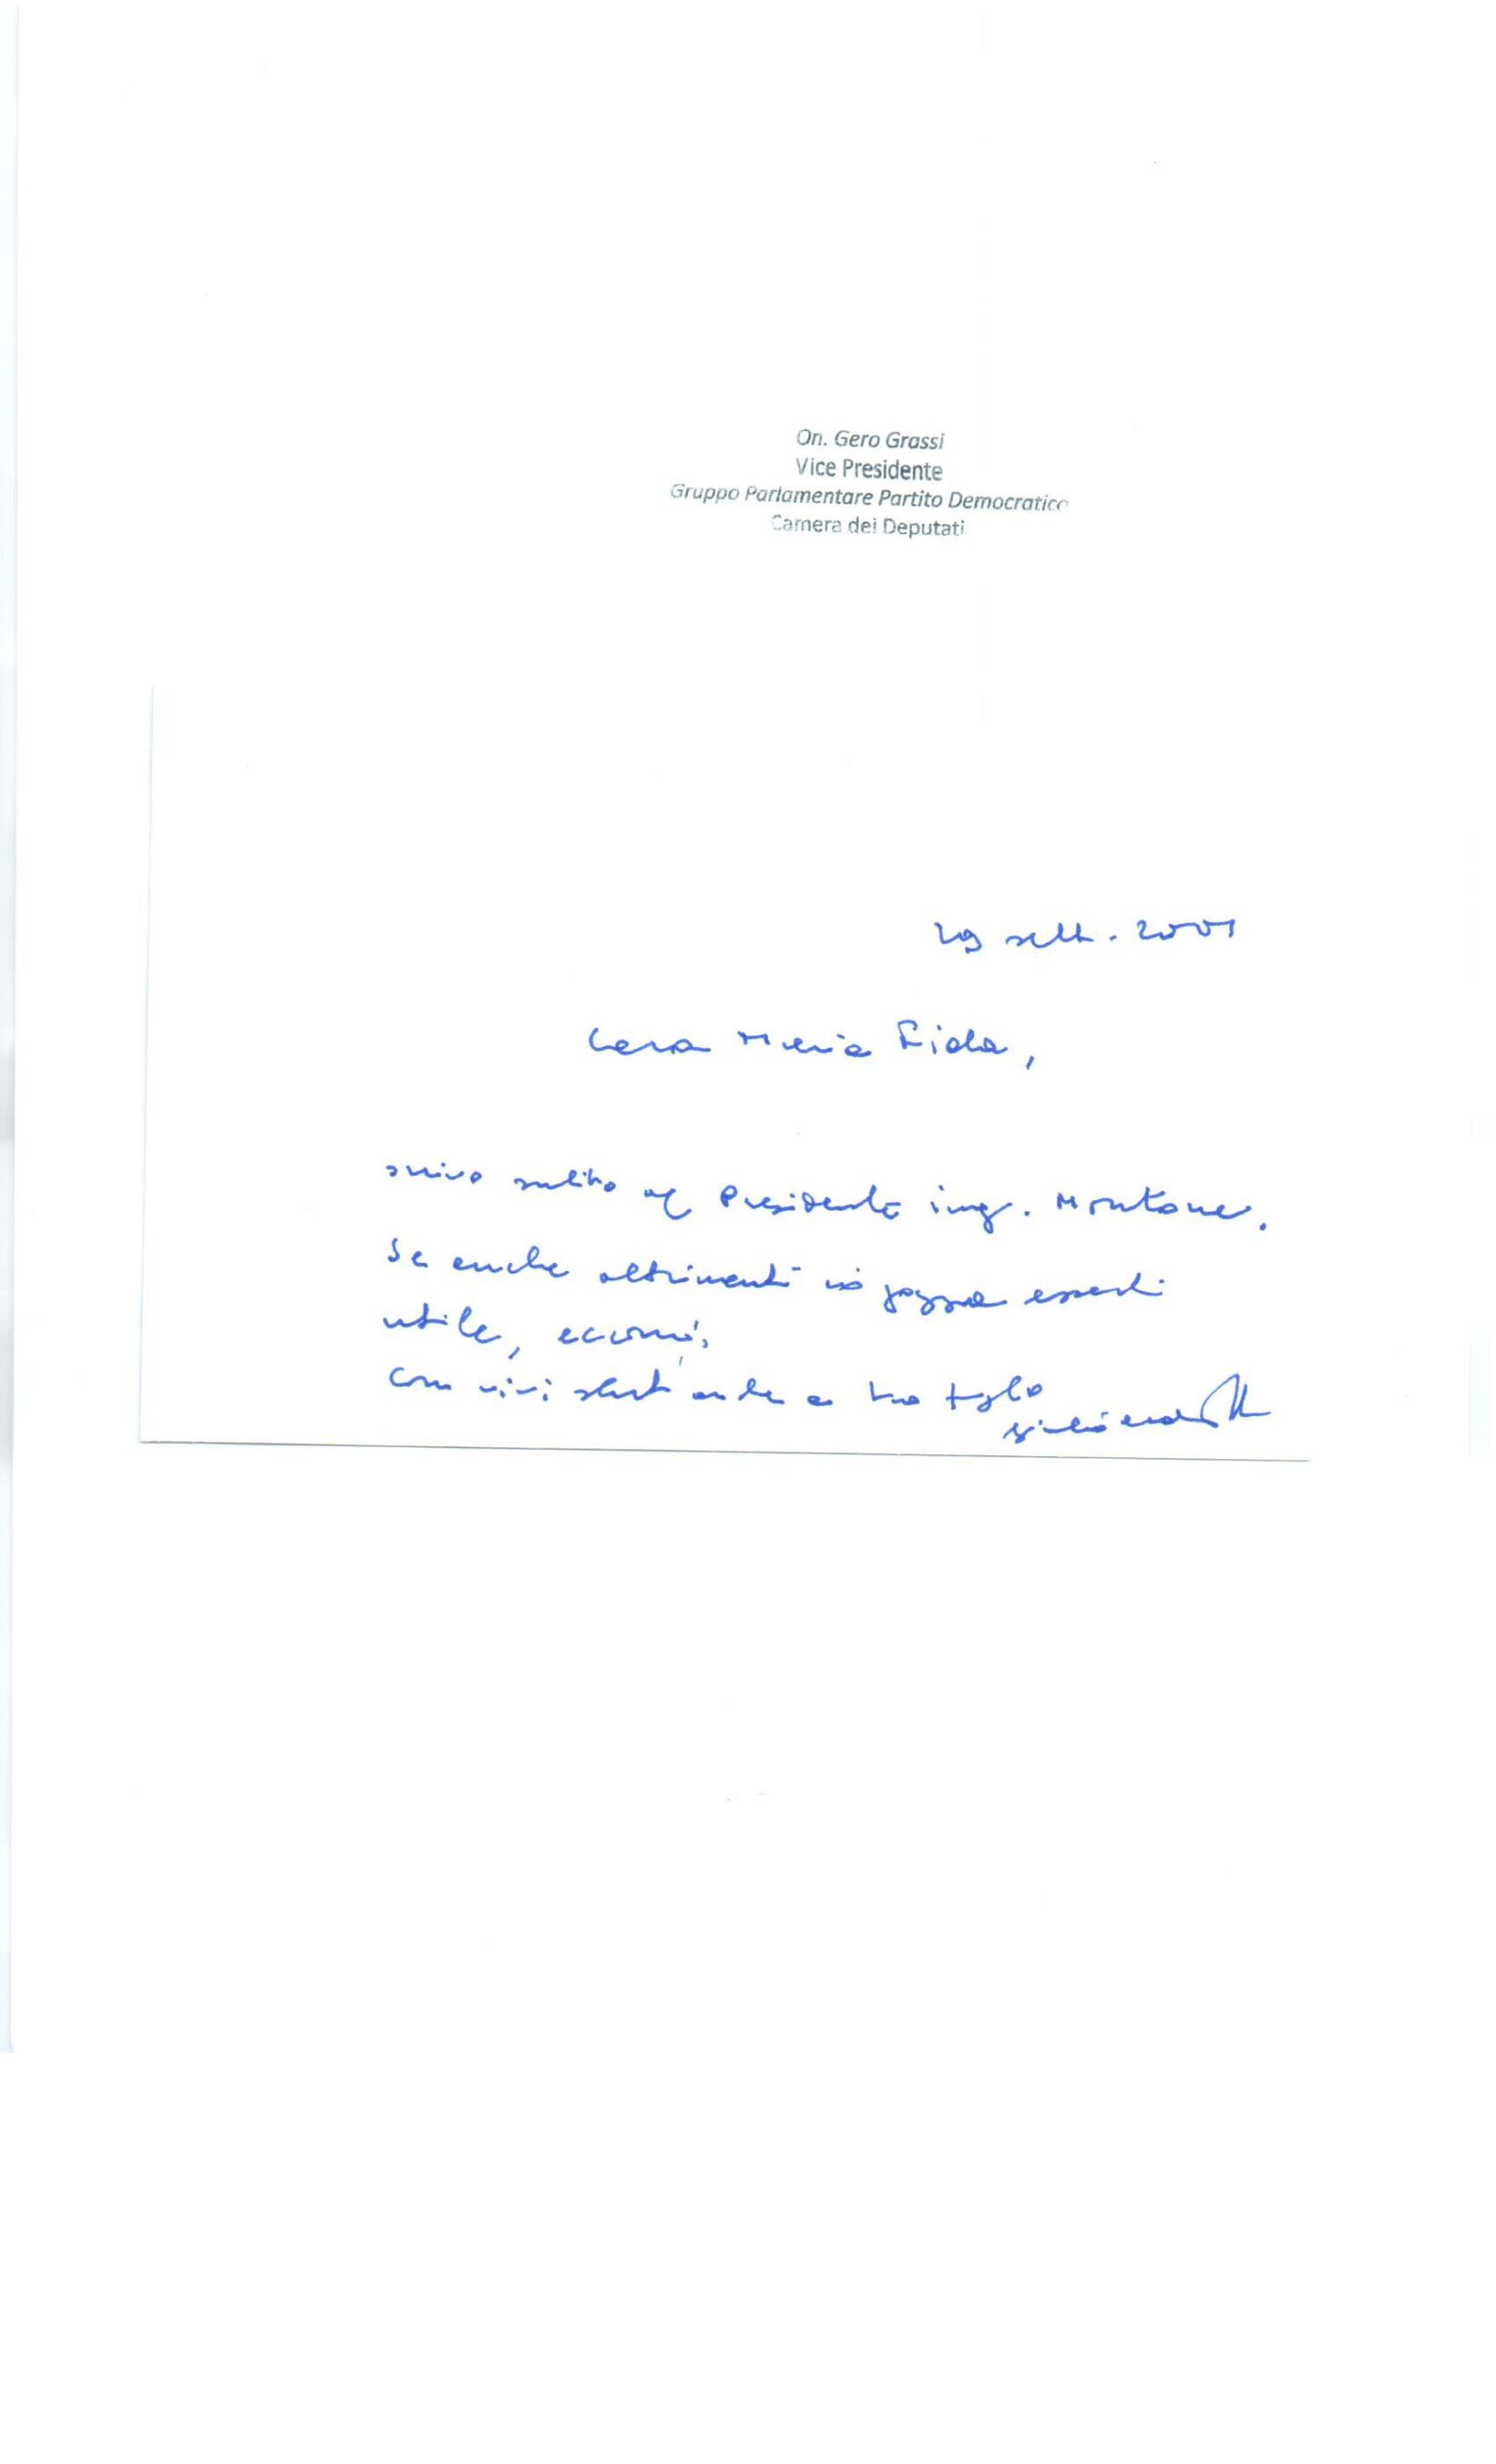 On. Gero Grassi
Vice Presidente
Gruppo Parlamentare Partito Democratico
Camera dei Deputati
29 sett. 2001
Cara Maria Fida,
scrivo subito al Presidente ing. Montone.
Se anche altrimenti io possa esserti
utile, eccomi.
Con vivi saluti anche a tuo figlio